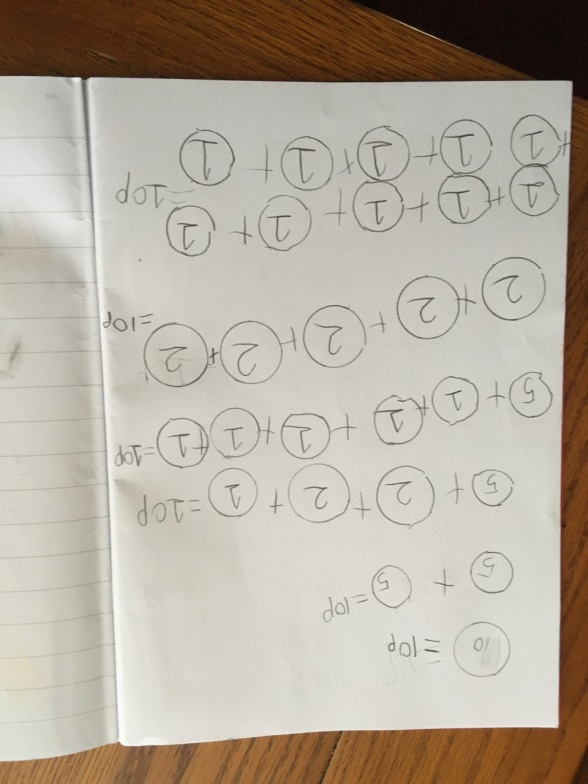 10 = 10p
5 + 5 = 10p
5 + 2 + 2 + 1 = 10p
5 + 1 + 1 + 1 + 1 + 1 = 10p
2 + 2 + 2 + 2 + 2 = 10p
1 + 1 + 1 + 1 + 1
+ 1 1 + 1 + 1 + 1 = 10p